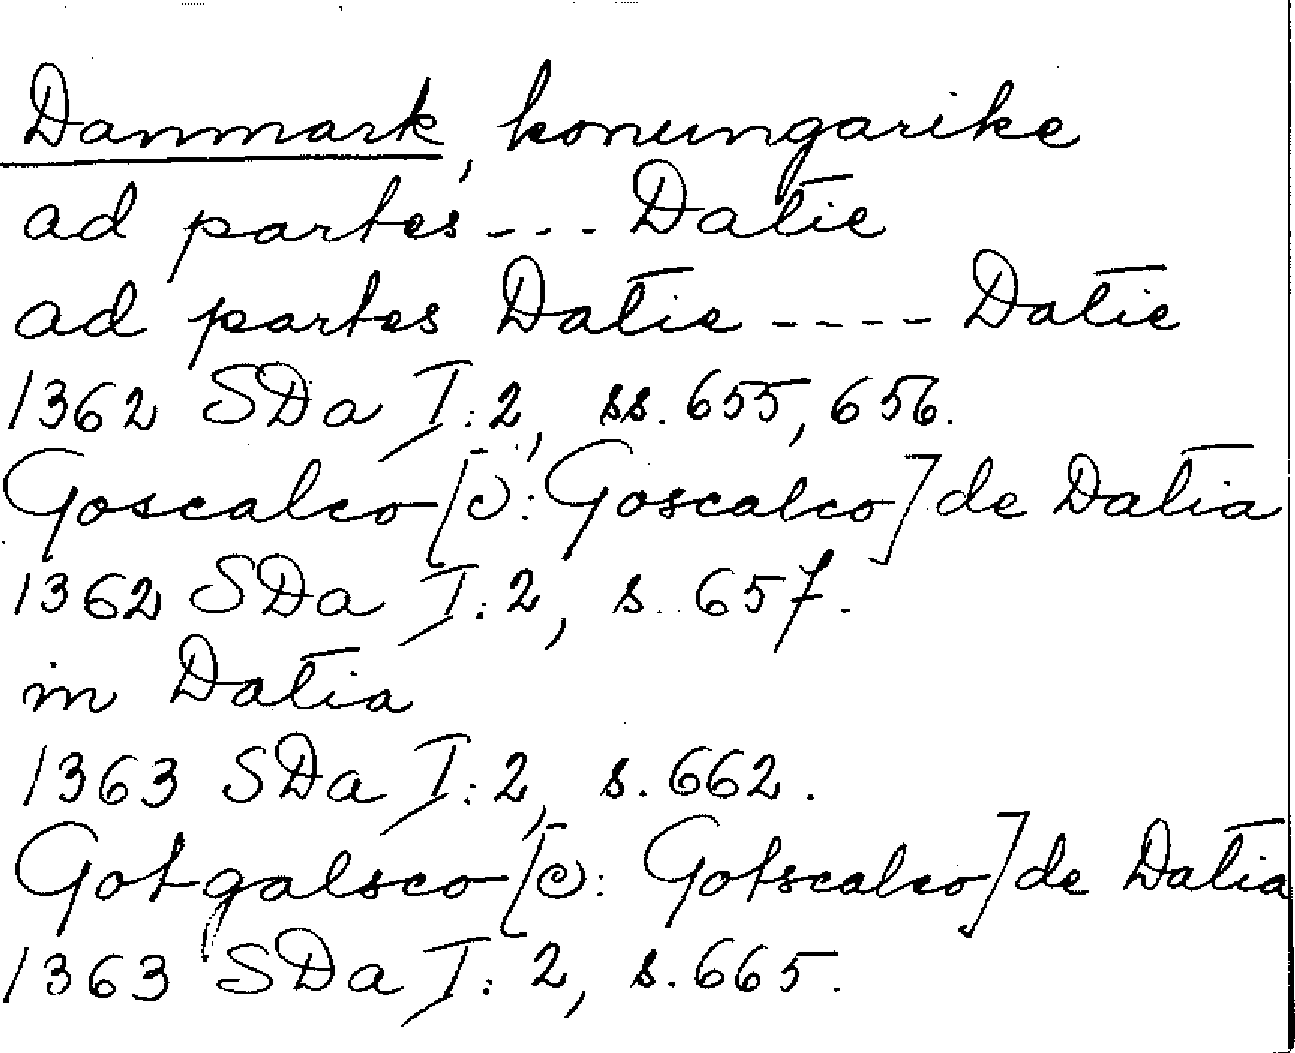 Danmark, konungarike
ad partes --- Datie
ad partes Datie ---- Datie
1362 SDa I:2, ss. 655, 656.
Goscalco [ɔ: Goscalco] de Datia
1362 SDa I:2, s. 657.
in Datia
1363 SDa I:2, s. 662.
Gotgalsco [ɔ: Gotscalco] de Datia
1363 SDa I:2, s. 665.